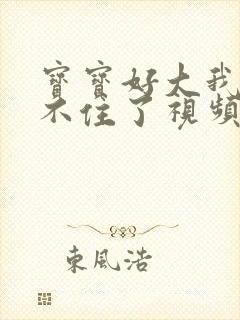 寶寶好大我
不住了視頻
東風浩